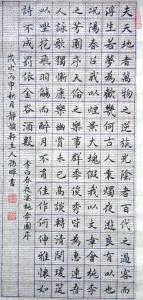 夫天地者萬物之逆旅光陰者百代之過客而
浮生若夢為歡幾何古人秉燭夜遊良有以也
況陽春召我以煙景大塊假我以文章會桃李
之芳園序天倫之樂事群季俊秀皆為惠連吾
人詠歌獨慚康樂幽賞未已高談轉清開瓊筵
以坐花飛羽觴而醉月不有佳作何伸雅懷如
詩不成罰依金谷酒數 李白春夜宴桃李園序
歲次丙申秋月靜韻軒主人楊書